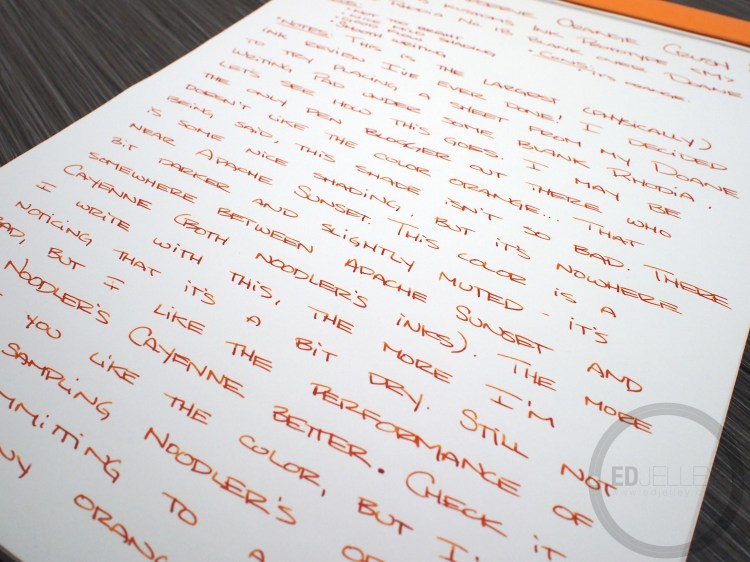 Orange Crush
Customs Ink Prototype
Rhodia No 18 Blank over Doane
- Not too bright
shading
- Good flow
- Smooth writing
- Cons:
- It's orange.
Notes: This is the largest (physically)
ink review I've ever done! I decided
to try placing a sheet from my Doane
writing pad under some blank Rhodia.
Let's see how this goes. I may be
the only pen blogger out there who
doesn't like the color orange... That
being said, this shade isn't so bad. There
is some nice shading, but it's nowhere
near Apache Sunset. This color is a
bit darker and slightly muted - it's
somewhere between Apache Sunset and
Cayenne (both Noodler's inks). The more
I write with this, the more I'm
noticing that it's a bit dry. Still not
bad, but I like the performance of
Noodler's Cayenne better. Check it
you like the color, but I'
sampling Noodler's
mmitting to a
ny orang
EDJELLEY